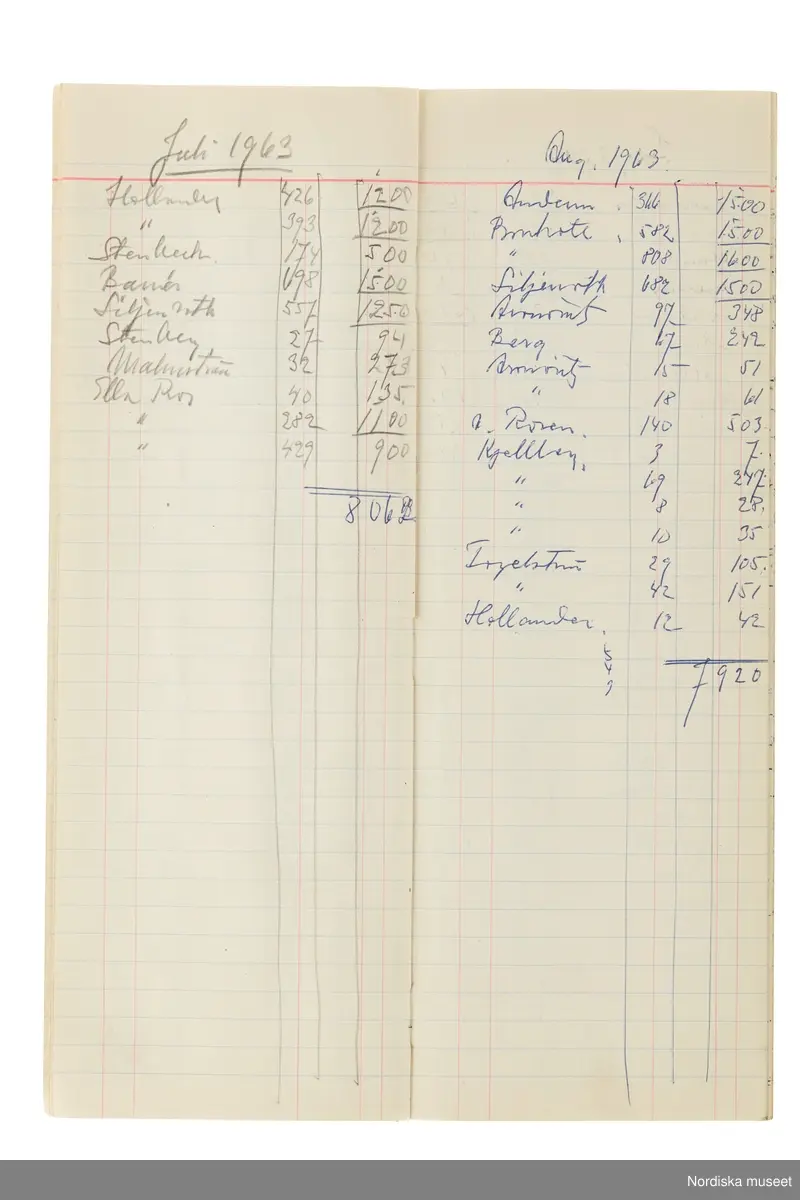 Juli 1963
Hollander 426 1200
" 393 1200
Stenbeck. 174 500
Banér 698 1500
Liljenroth 557 1250
Stenberg 27 94
Malmström 32 273
Ella Ros 40 135
" 282 1100
" 429 900
8062
Aug. 1963.
366 1500
582 1500
" 808 1600
Liljenroth 682 1500
97 348
Berg 67 242
15 51
" 18 61
v. Rosen. 140 503
Kjellberg. 3 7.
" 69 247.
" 8 28.
" 10 35
29 105.
" 42 151
Hollander. 12 42
5
4
9
7920
Nordiska museet